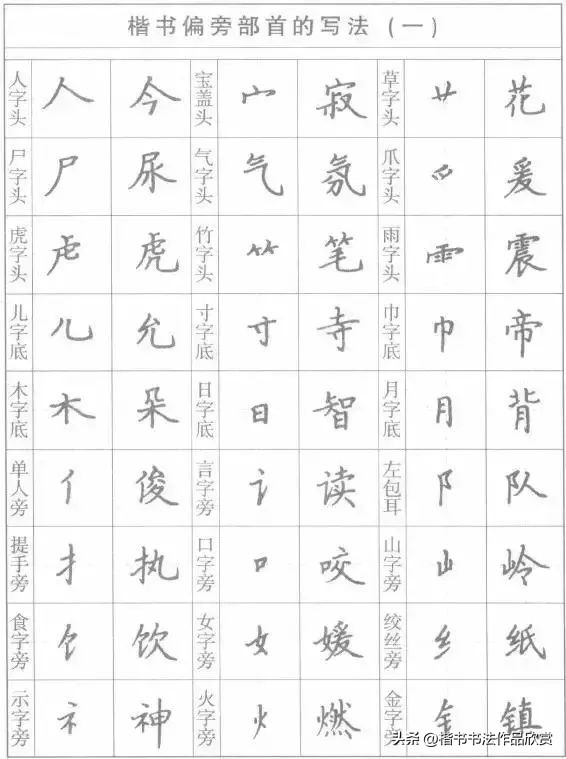 楷书偏旁部首的写法（一）
人字头 人 今 宝盖头 宀 寂 草字头 艹 花
尸字头 尸 尿 气字头 气 氛 爪字头 爫 爰
虎字头 虍 虎 竹字头 ⺮ 笔 雨字头 ⻗ 震
儿字底 儿 允 寸字底 寸 寺 巾字底 巾 帝
木字底 木 朵 日字底 日 智 月字底 月 背
单人旁 亻 俊 言字旁 讠 读 左包耳 阝 队
提手旁 扌 执 口字旁 口 咬 山字旁 山 岭
食字旁 饣 饮 女字旁 女 媛 绞丝旁 纟 纸
示字旁 礻 神 火字旁 火 燃 金字旁 钅 镇
头条 @楷书书法作品欣赏